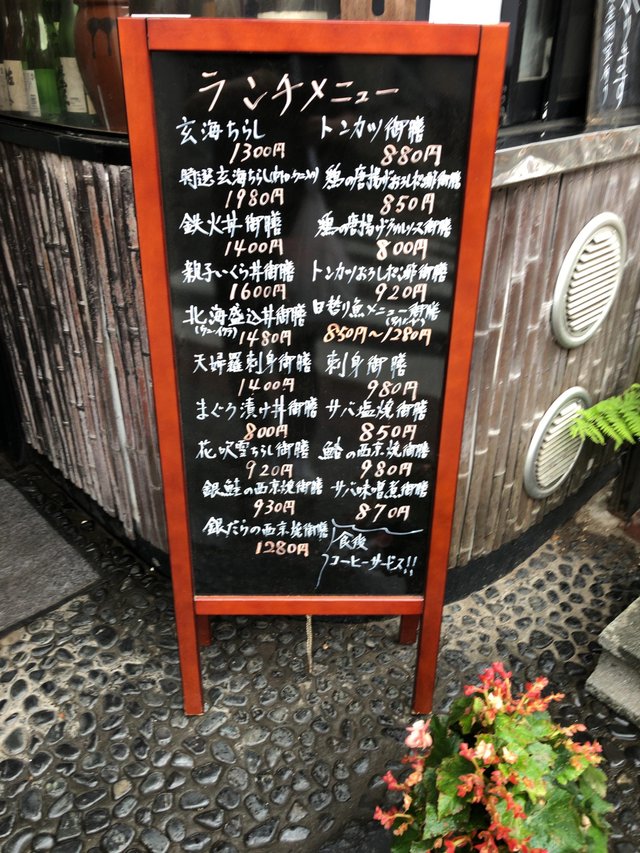 ランチメニュー
玄海ちらし
1300円
特選玄海ちらし
1980円
鉄火丼御膳
1400円
親子いくら丼御膳
1600円
北海盛込丼御膳
1480円
天婦羅刺身御膳
1400円
まぐろ漬け丼御膳
800円
花吹雪ちらし御膳
920円
銀鮭の西京焼御膳
930円
銀だらの西京焼御膳
1280円
トンカツ御膳
880円
鶏の唐揚げおろしポン酢御膳
850円
鶏の唐揚げタルタルソース御膳
800円
トンカツおろしポン酢御膳
920円
日替り魚メニュー御膳
850円〜1280円
刺身御膳
980円
サバ塩焼御膳
850円
の西京焼御膳
980円
サバ味噌煮御膳
870円
食後
コーヒーサービス!!